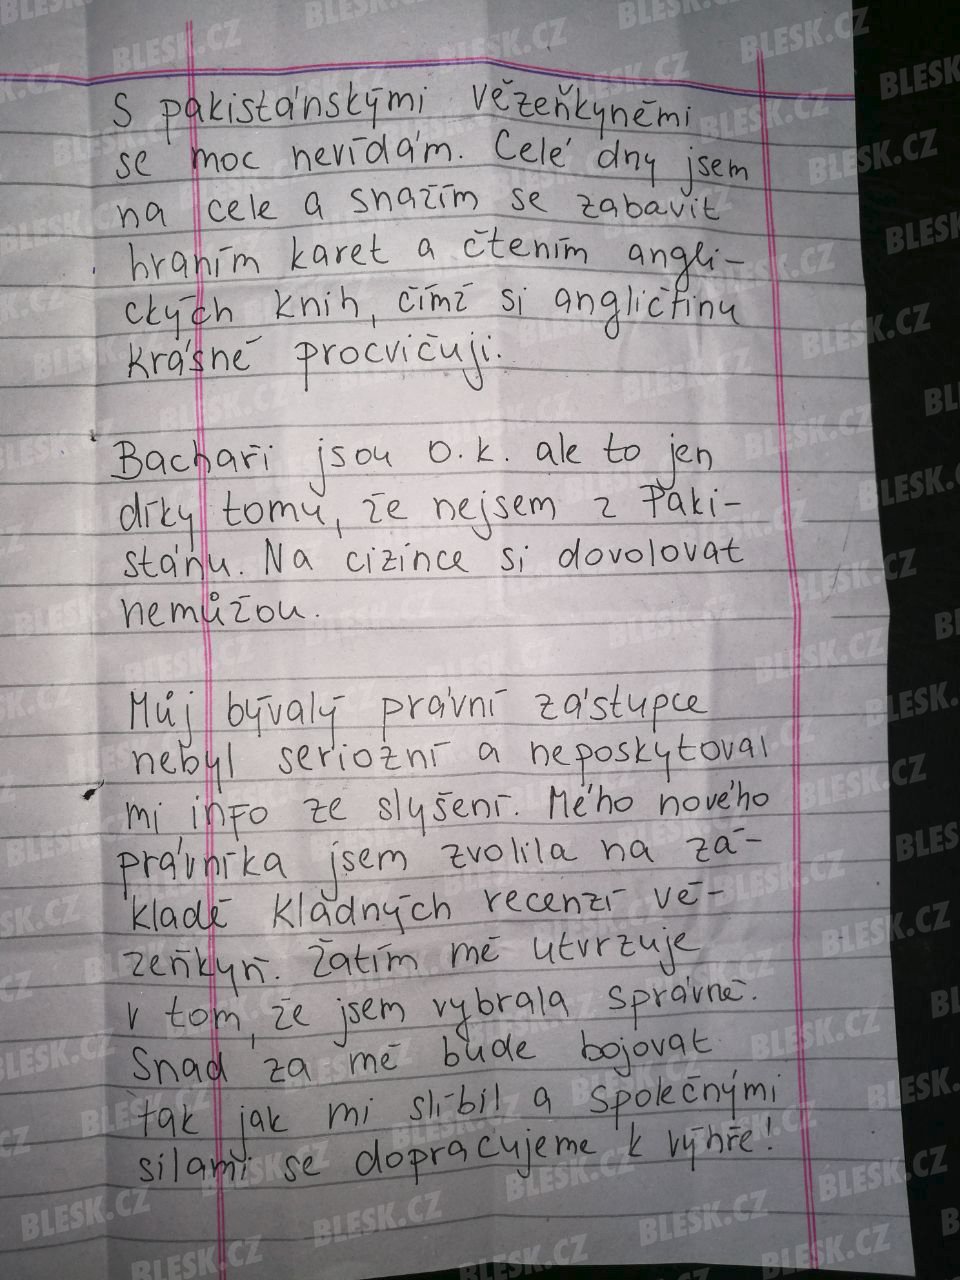 S pakistánskými vězeňkyněmi
se moc nevídám. Celé dny jsem
na cele a snažím se zabavit
hraním karet a čtením angli-
ckých knih, čímž si angličtinu
krásně procvičuji.
Bachaři jsou O.K. ale to jen
díky tomu, že nejsem z Paki-
stánu. Na cizince si dovolovat
nemůžou.
Můj bývalý právní zástupce
nebyl seriozní a neposkytoval
mi info ze slyšení. Mého nového
právníka jsem zvolila na zá-
kladě kladných recenzí vě-
zeňkyň. Zatím mě utvrzuje
v tom, že jsem vybrala správně.
Snad za mě bude bojovat
tak jak mi slíbil a společnými
silami se dopracujeme k výhře!
BLESK.CZ